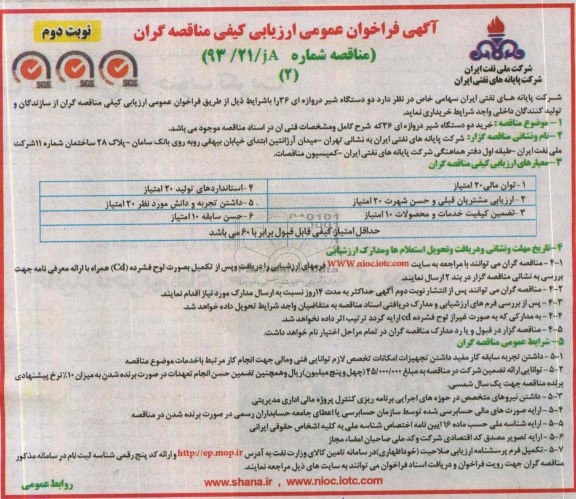 آگهی فراخوان عمومی ارزیابی کیفی مناقصه گران
نوبت دوم
(مناقصه شماره ۹۳/۲۱/jA)
(۲)
شرکت ملی نفت ایران
شرکت پایانه های نفتی ایران
SGS SGS SGS
شرکت پایانه های نفتی ایران سهامی خاص در نظر دارد دو دستگاه شیر دروازه ای ۳۶ را باشرایط ذیل از طریق فراخوان عمومی ارزیابی کیفی مناقصه گران از سازندگان و
تولید کنندگان داخلی واجد شرایط خریداری نماید.
۱- موضوع مناقصه: خرید دو دستگاه شیر دروازه ای ۳۶ که شرح کامل ومشخصات فنی ان در اسناد مناقصه موجود می باشد.
۲- نام ونشانی مناقصه گزار: شرکت پایانه های نفتی ایران به نشانی تهران -میدان آرژانتین ابتدای خیابان بیهقی روبه روی بانک سامان -پلاک ۲۸ ساختمان شماره ۱۱شرکت
ملی نفت ایران -طبقه اول دفتر هماهنگی شرکت پایانه های نفتی ایران -کمیسیون مناقصات.
۳-معیارهای ارزیابی کیفی مناقصه گران
۱- توان مالی ۲۰ امتیاز
۴-استانداردهای تولید ۲۰ امتیاز
۲-ارزیابی مشتریان قبلی و حسن شهرت ۲۰ امتیاز
۵- داشتن تجربه و دانش مورد نظر ۲۰ امتیاز
۳-تضمین کیفیت خدمات و محصولات ۱۰ امتیاز
۶-حسن سابقه ۱۰ امتیاز
حداقل امتیاز کیفی قابل قبول برابر با ۶۰ می باشد
۴-تاریخ مهلت ونشانی ودریافت وتحویل استعلام ها ومدارک ارزشیابی
۴-۱- مناقصه گران می توانند با مراجعه به سایت WWW.nioc.iotc.com فرمهای ارزشیابی را دریافت وپس از تکمیل بصورت لوح فشرده (Cd) همراه با ارائه معرفی نامه جهت
بررسی به نشانی مناقصه گزار در بند ۲ ارسال نمایند.
۴-۲- مناقصه گران می توانند پس از انتشار نوبت دوم آگهی حداکثر به مدت ۱۴روز نسبت به ارسال مدارک مورد نیاز اقدام نمایند.
۴-۳- پس از بررسی فرم های ارزشیابی و مدارک دریافتی اسناد مناقصه به متقاضیان واجد شرایط تحویل داده خواهد شد.
۴-۴- به مدارکی که به صورتی غیراز لوح فشرده cd ارایه گردد ترتیب اثر داده نخواهد شد.
۴-۵- مناقصه گزار در قبول و یا رد مدارک مناقصه گران در تمام مراحل اختیار تام خواهد داشت.
۵- شرایط عمومی مناقصه گران
۵-۱- داشتن تجربه سابقه کار مفید داشتن تجهیزات امکانات تخصص لازم توانایی فنی ومالی جهت انجام کار مرتبط باخدمات موضوع مناقصه
۵-۲- توانایی ارائه تضمین شرکت در مناقصه به مبلغ ۴۵/۰۰۰/۰۰۰ (چهل وپنج میلیون)ریال وهمچنین تضمین حسن انجام تعهدات در صورت برنده شدن به میزان ۱۰٪نرخ پیشنهادی
برنده مناقصه جهت یک سال شمسی.
۵-۳- داشتن نیروهای متخصص در حوزه های اجرایی برنامه ریزی کنترل پروژه مالی اداری مدیریتی
۵-۴- ارایه صورت های مالی حسابرسی شده توسط سازمان حسابرسی یا اعضای جامعه حسابداران رسمی در صورت برنده شدن در مناقصه
۵-۵- ارایه شناسه ملی حسب ماده ۱۶ آیین نامه اختصاص شناسه ملی به کلیه اشخاص حقوقی ایرانی
۵-۶- ارایه تصویر مصدق کد اقتصادی شرکت وکد ملی صاحبان امضاء مجاز
۵-۷- تکمیل فرم پرسشنامه ارزیابی صلاحیت (خوداظهاری)در سامانه تامین کالای وزارت نفت به آدرس http://ep.mop.ir و ارائه کد پنج رقمی شناسه ثبت نام در سامانه مذکور
مناقصه گران جهت رویت فراخوان و دریافت اسناد فراخوان می توانند به سایت های ذیل مراجعه نمایند.
www.shana.ir , www.nioc.iotc.com
روابط عمومی